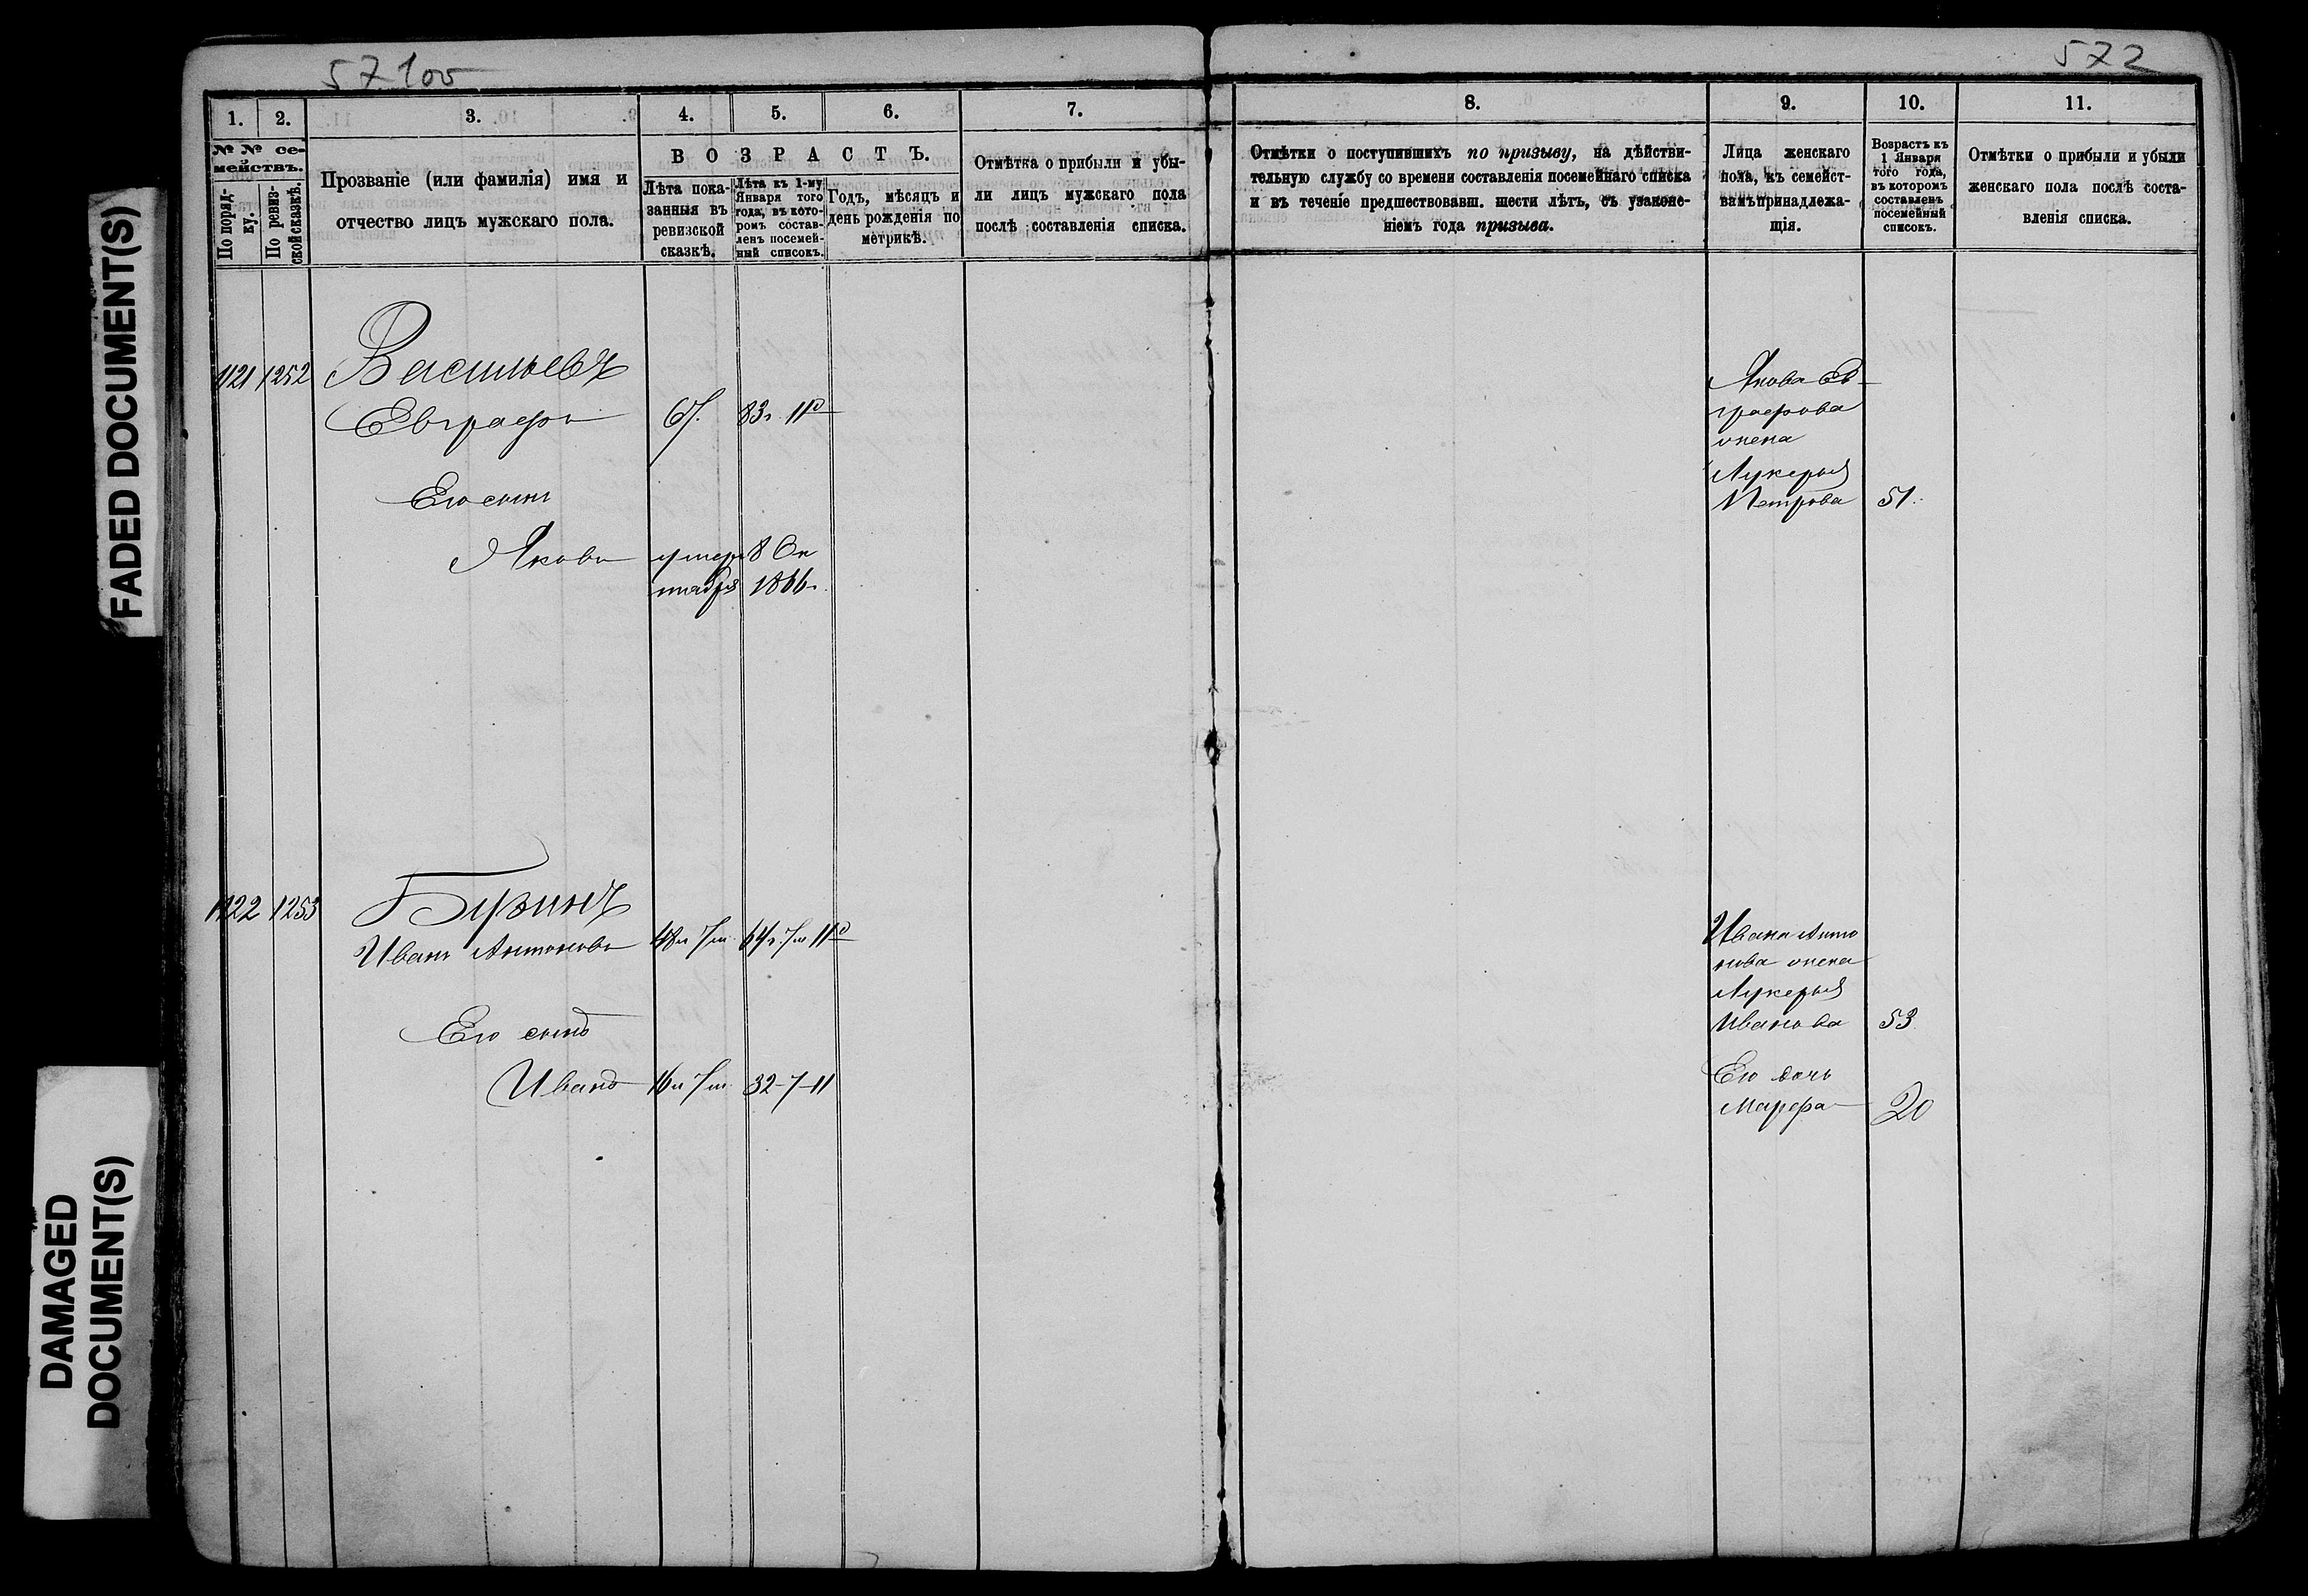 57 100
572
1.
2.
3.
4.
5.
6.
7.
8.
9.
10.
11.
№ № се-
мействъ.
По поряд-
ку.
По ревиз-
ской сказкѣ.
Прозваніе (или фамилія) имя и
отчество лицъ мужскаго пола.
ВОЗРАСТЪ.
Лѣта пока-
занныя въ
ревизской
сказкѣ.
Лѣта къ 1-му
Января того
года, въ кото-
ромъ состав-
ленъ посемей-
ный списокъ.
Годъ, мѣсяцъ и
день рожденія по
метрикѣ.
Отмѣтка о прибыли и убы-
ли лицъ мужскаго пола
послѣ составленія списка.
Отмѣтки о поступившихъ по призыву, на дѣйстви-
тельную службу со времени составленія посемейнаго списка
и въ теченіе предшествовавш. шести лѣтъ, съ узаконе-
ніемъ года призыва.
Лица женскаго
пола, къ семейст-
вамъ принадлежа-
щія.
Возрастъ къ
1 Января
того года,
въ которомъ
составленъ
посемейный
списокъ.
Отмѣтки о прибыли и убыли
женскаго пола послѣ соста-
вленія списка.
1121 1252 Васильевъ
Евграфъ 67. 83г. 11д
Его сынъ
Яковъ умеръ 8 Ок
тября 1866г.
Якова Ев-
графова
жена
Лукерья
Петрова 51.
1122 1253 Бузинъ
Иванъ Антоновъ 48л 7м 64г. 7м 11д
Его сынъ
Иванъ 16л 7м 32-7-11
Ивана Анто
нова жена
Лукерья
Иванова 53
Его дочь
Марфа 20
FADED DOCUMENT(S)
DAMAGED
DOCUMENT(S)